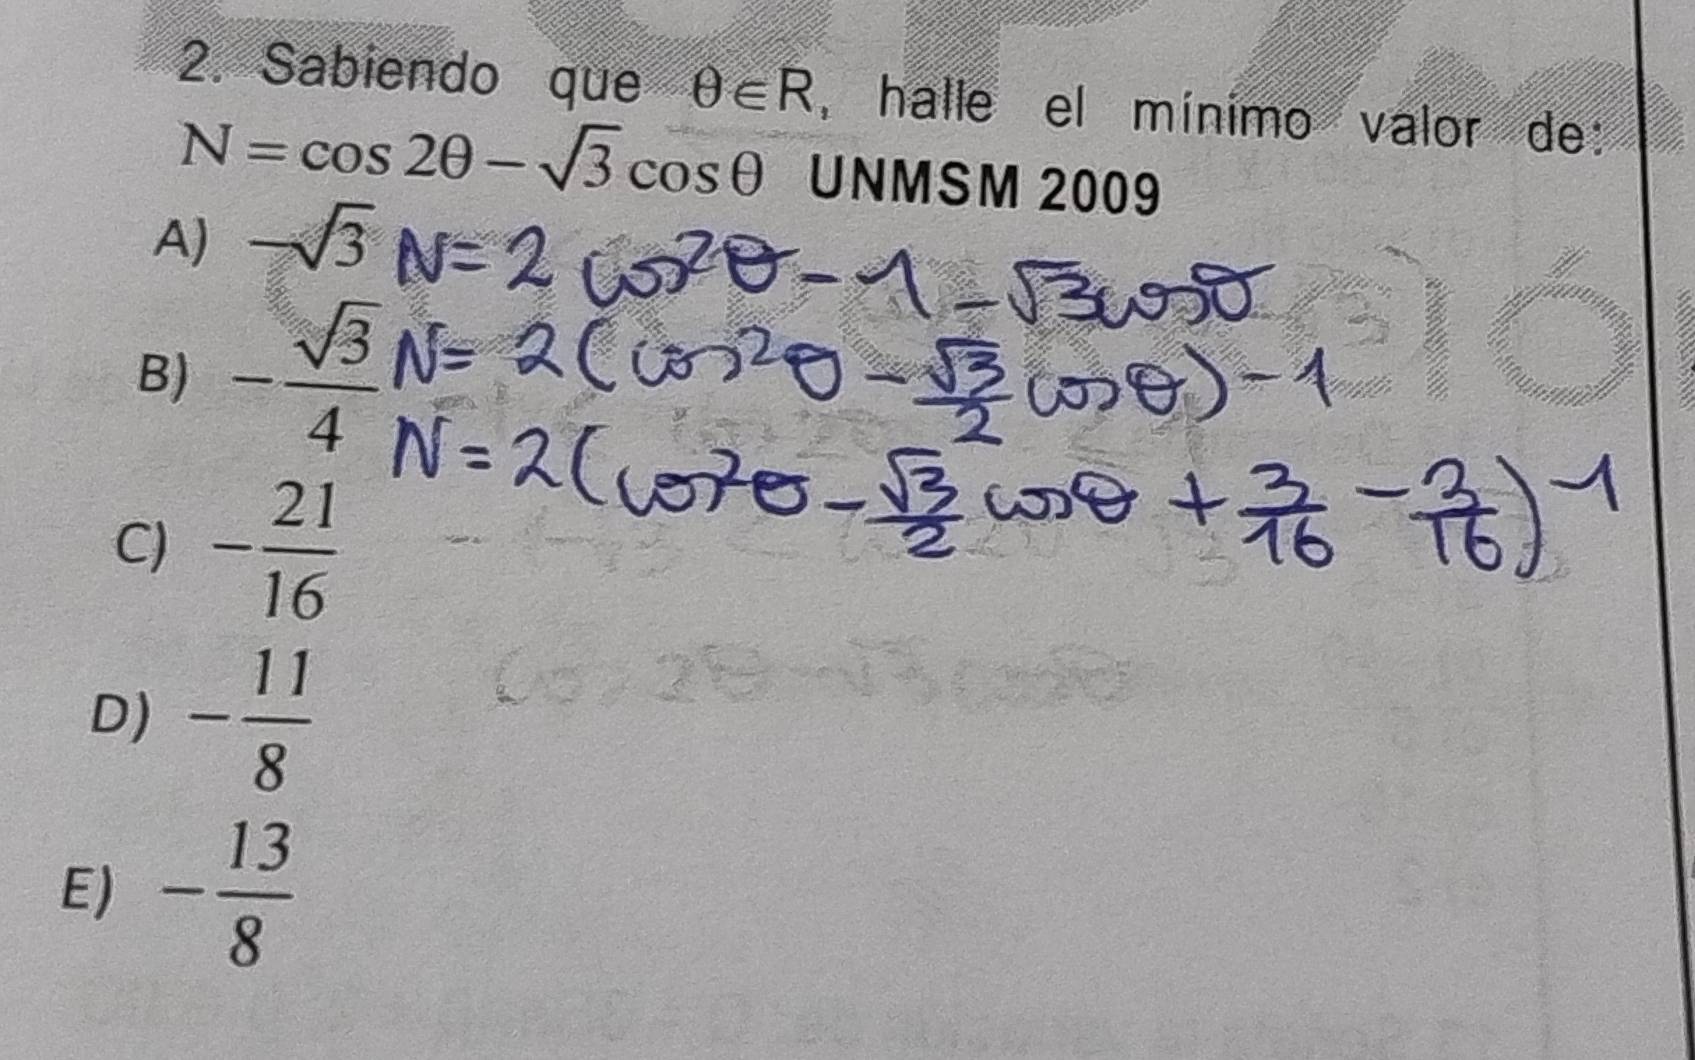 2. Sabiendo que θ∈R, halle el mínimo valor de:
N = cos 2θ − √3 cos θ UNMSM 2009
A) −√3
N = 2 cos²θ − 1 − √3 cosθ
B) −√3/4
N = 2(cos²θ − √3/2 cosθ) − 1
N = 2(cos²θ − √3/2 cosθ + 3/16 − 3/16) − 1
C) −21/16
cos 2θ − √3 cosθ
D) −11/8
E) −13/8